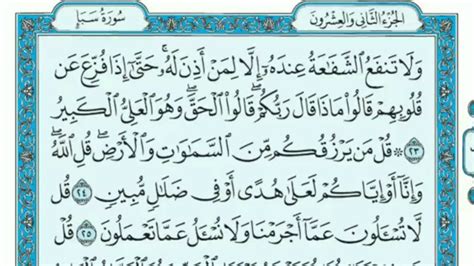 الجزء الثاني والعشرون
سورة سبإ
وَلَا تَنفَعُ الشَّفَاعَةُ عِندَهُ إِلَّا لِمَنْ أَذِنَ لَهُ حَتَّىٰ إِذَا فُزِّعَ عَن
قُلُوبِهِمْ قَالُوا مَاذَا قَالَ رَبُّكُمْ قَالُوا الْحَقَّ وَهُوَ الْعَلِيُّ الْكَبِيرُ
٢٣ ۞ قُلْ مَن يَرْزُقُكُم مِّنَ السَّمَاوَاتِ وَالْأَرْضِ قُلِ اللَّهُ
وَإِنَّا أَوْ إِيَّاكُمْ لَعَلَىٰ هُدًى أَوْ فِي ضَلَالٍ مُّبِينٍ ٢٤ قُل
لَّا تُسْأَلُونَ عَمَّا أَجْرَمْنَا وَلَا نُسْأَلُ عَمَّا تَعْمَلُونَ ٢٥ قُلْ